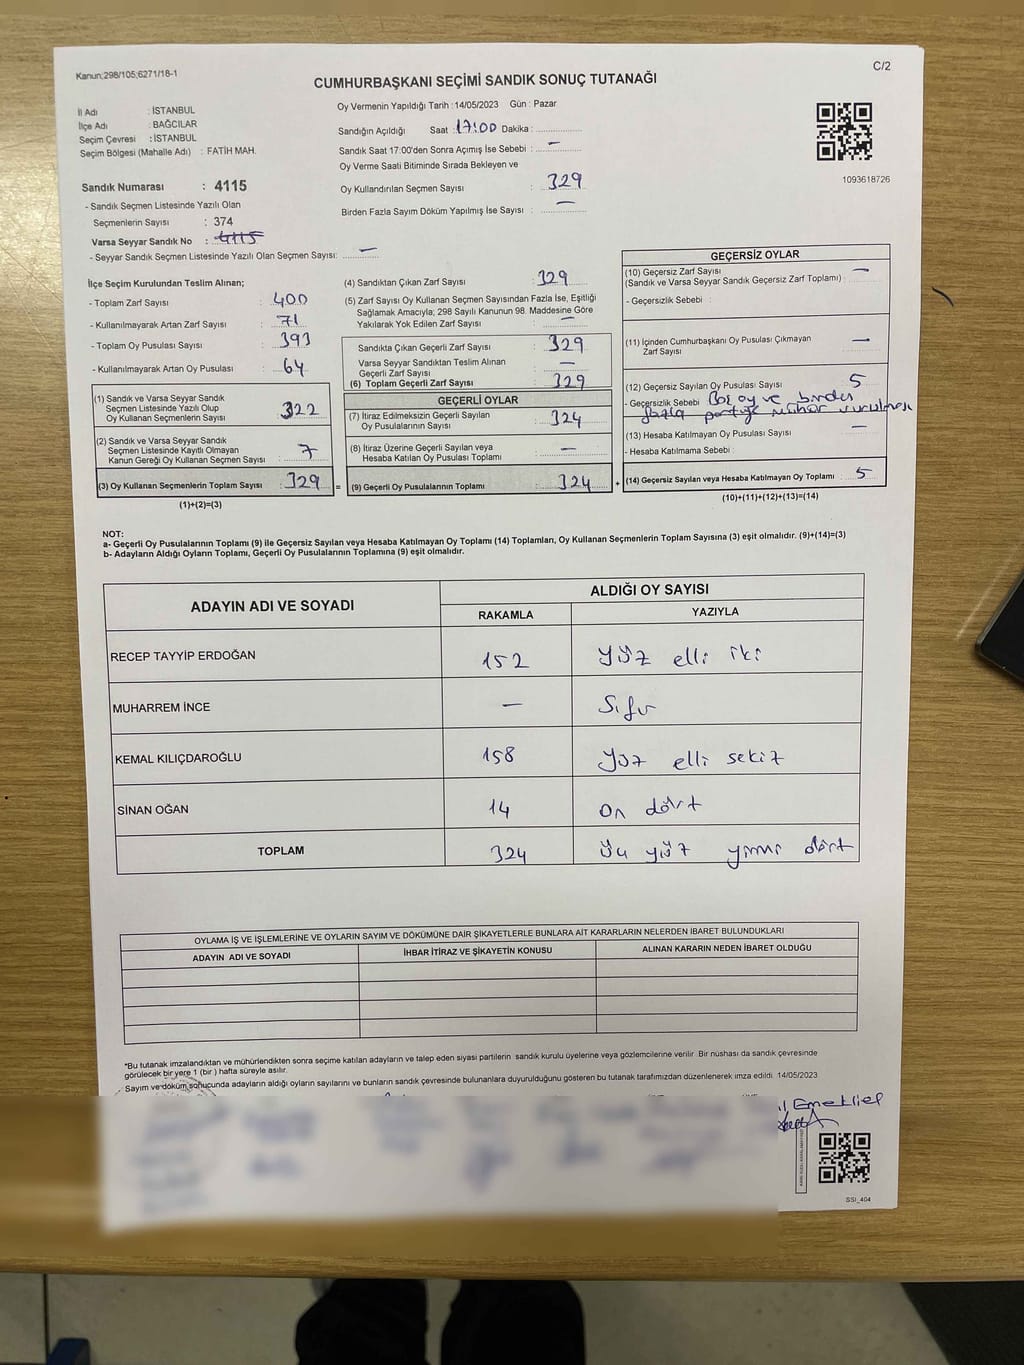 Kanun;298/105;6271/18-1
C/2
CUMHURBAŞKANI SEÇİMİ SANDIK SONUÇ TUTANAĞI
İl Adı : İSTANBUL
İlçe Adı : BAĞCILAR
Seçim Çevresi : İSTANBUL
Seçim Bölgesi (Mahalle Adı) : FATİH MAH.
Sandık Numarası : 4115
- Sandık Seçmen Listesinde Yazılı Olan
Seçmenlerin Sayısı : 374
Varsa Seyyar Sandık No : 4115
- Seyyar Sandık Seçmen Listesinde Yazılı Olan Seçmen Sayısı: —
Oy Vermenin Yapıldığı Tarih :14/05/2023 Gün : Pazar
Sandığın Açıldığı Saat :17:00 Dakika :
Sandık Saat 17:00'den Sonra Açımış İse Sebebi : —
Oy Verme Saati Bitiminde Sırada Bekleyen ve
Oy Kullandırılan Seçmen Sayısı : 329
Birden Fazla Sayım Döküm Yapılmış İse Sayısı : —
1093618726
İlçe Seçim Kurulundan Teslim Alınan;
- Toplam Zarf Sayısı : 400
- Kullanılmayarak Artan Zarf Sayısı : 71
- Toplam Oy Pusulası Sayısı : 393
- Kullanılmayarak Artan Oy Pusulası : 64
(1) Sandık ve Varsa Seyyar Sandık
Seçmen Listesinde Yazılı Olup
Oy Kullanan Seçmenlerin Sayısı : 322
(2) Sandık ve Varsa Seyyar Sandık
Seçmen Listesinde Kayıtlı Olmayan
Kanun Gereği Oy Kullanan Seçmen Sayısı : 7
(3) Oy Kullanan Seçmenlerin Toplam Sayısı : 329 =
(1)+(2)=(3)
(4) Sandıktan Çıkan Zarf Sayısı : 329
(5) Zarf Sayısı Oy Kullanan Seçmen Sayısından Fazla İse, Eşitliği
Sağlamak Amacıyla; 298 Sayılı Kanunun 98. Maddesine Göre
Yakılarak Yok Edilen Zarf Sayısı : —
Sandıkta Çıkan Geçerli Zarf Sayısı : 329
Varsa Seyyar Sandıktan Teslim Alınan
Geçerli Zarf Sayısı : —
(6) Toplam Geçerli Zarf Sayısı : 329
GEÇERLİ OYLAR
(7) İtiraz Edilmeksizin Geçerli Sayılan
Oy Pusulalarının Sayısı : 324
(8) İtiraz Üzerine Geçerli Sayılan veya
Hesaba Katılan Oy Pusulası Toplamı : —
(9) Geçerli Oy Pusulalarının Toplamı : 324 +
GEÇERSİZ OYLAR
(10) Geçersiz Zarf Sayısı —
(Sandık ve Varsa Seyyar Sandık Geçersiz Zarf Toplamı) :
- Geçersizlik Sebebi :
(11) İçinden Cumhurbaşkanı Oy Pusulası Çıkmayan
Zarf Sayısı : —
(12) Geçersiz Sayılan Oy Pusulası Sayısı : 5
- Geçersizlik Sebebi Boş oy ve birden
fazla partiye mühür vurulması
(13) Hesaba Katılmayan Oy Pusulası Sayısı : —
- Hesaba Katılmama Sebebi :
(14) Geçersiz Sayılan veya Hesaba Katılmayan Oy Toplamı : 5
(10)+(11)+(12)+(13)=(14)
NOT:
a- Geçerli Oy Pusulalarının Toplamı (9) ile Geçersiz Sayılan veya Hesaba Katılmayan Oy Toplamı (14) Toplamları, Oy Kullanan Seçmenlerin Toplam Sayısına (3) eşit olmalıdır. (9)+(14)=(3)
b- Adayların Aldığı Oyların Toplamı, Geçerli Oy Pusulalarının Toplamına (9) eşit olmalıdır.
ADAYIN ADI VE SOYADI ALDIĞI OY SAYISI
RAKAMLA YAZIYLA
RECEP TAYYİP ERDOĞAN 152 Yüz elli iki
MUHARREM İNCE — Sıfır
KEMAL KILIÇDAROĞLU 158 Yüz elli sekiz
SİNAN OĞAN 14 On dört
TOPLAM 324 Üç yüz yirmi dört
OYLAMA İŞ VE İŞLEMLERİNE VE OYLARIN SAYIM VE DÖKÜMÜNE DAİR ŞİKAYETLERLE BUNLARA AİT KARARLARIN NELERDEN İBARET BULUNDUKLARI
ADAYIN ADI VE SOYADI İHBAR İTİRAZ VE ŞİKAYETİN KONUSU ALINAN KARARIN NEDEN İBARET OLDUĞU
*Bu tutanak imzalandıktan ve mühürlendikten sonra seçime katılan adayların ve talep eden siyasi partilerin sandık kurulu üyelerine veya gözlemcilerine verilir. Bir nüshası da sandık çevresinde
görülecek bir yere 1 (bir) hafta süreyle asılır.
Sayım ve döküm sonucunda adayların aldığı oyların sayılarını ve bunların sandık çevresinde bulunanlara duyurulduğunu gösteren bu tutanak tarafımızdan düzenlenerek imza edildi. 14/05/2023
SSI_404